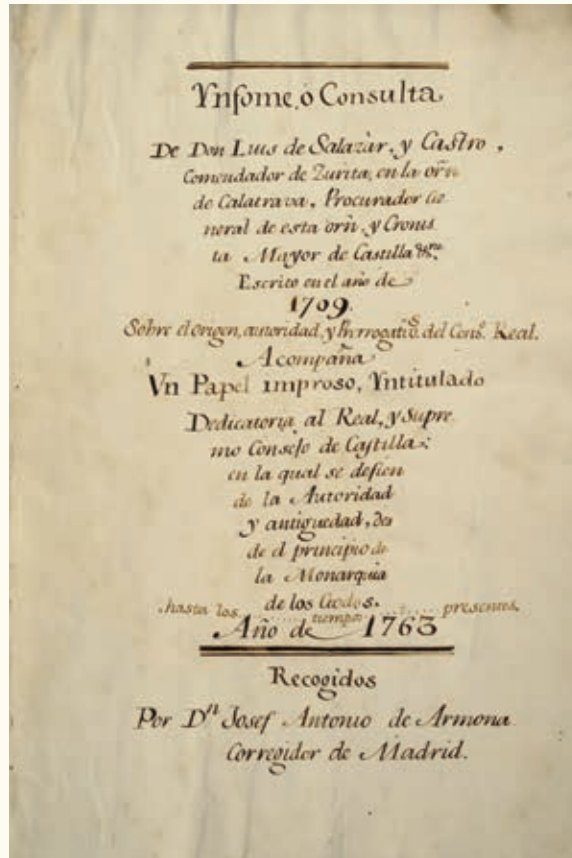 Ynfome, ò Consulta
De Don Luis de Salazàr, y Castro,
Comendador de Zurita, en la orñ
de Calatrava, Procurador Ge
neral de esta orñ, y Cronis
ta Mayor de Castilla &ra
Escrito en el año de
1709.
Sobre el origen, autoridad, y Prerrogativs. del Conso. Real.
Acompaña
Vn Papel impreso, Yntitulado
Dedicatoria al Real, y Supre
mo Consejo de Castilla:
en la qual se defien
de la Autoridad
y antiguedad, des
de el principio de
la Monarquia
de los Godos.
hasta los tiempos presentes.
Año de 1763
Recogidos
Por Dn Josef Antonio de Armona
Corregidor de Madrid.